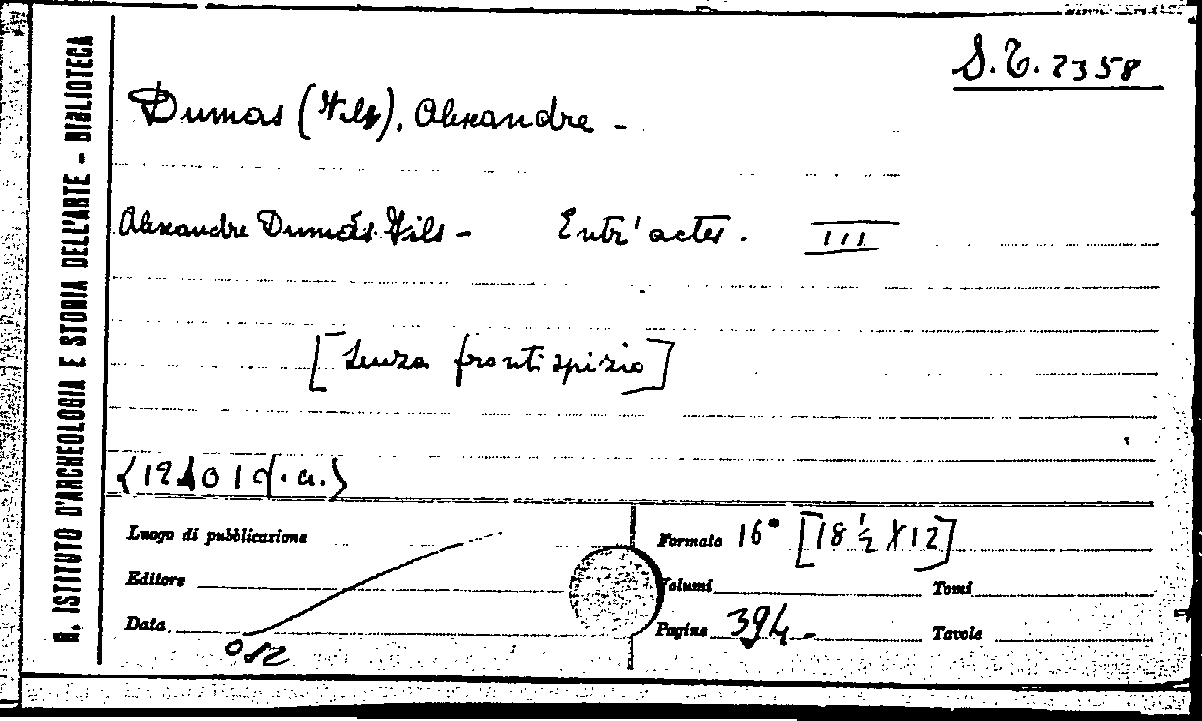 R. ISTITUTO D'ARCHEOLOGIA E STORIA DELL'ARTE - BIBLIOTECA
S.T. 2358
Dumas (Fils), Alexandre -
Alexandre Dumas Fils - Entr'actes. III
[Senza frontispizio]
Luogo di pubblicazione
Formato 16° [18 ½ X 12]
Editore
Volumi
Tomi
Data
Pagine 394 -
Tavole